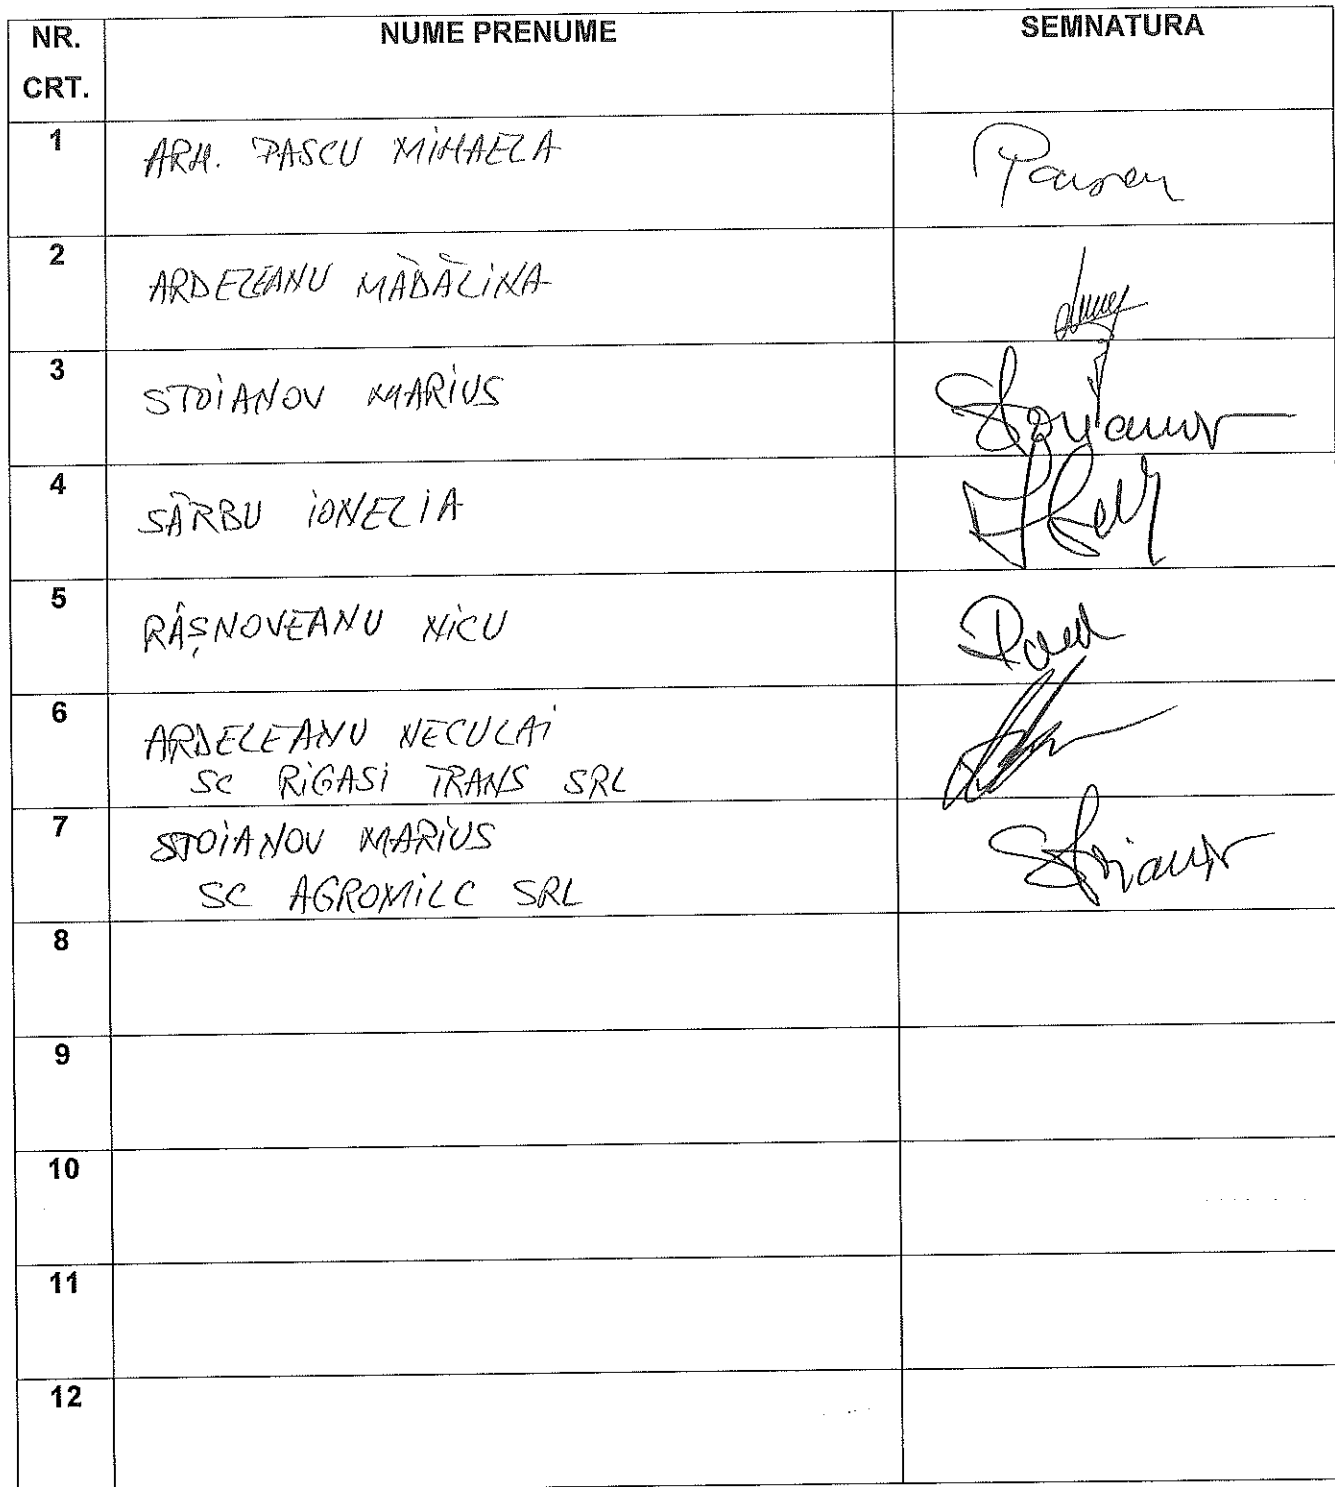 NR. CRT. NUME PRENUME SEMNATURA
1 ARH. PASCU MIHAELA
2 ARDELEANU MĂDĂLINA
3 STOIANOV MARIUS Stoianov
4 SÂRBU IONELIA
5 RÂȘNOVEANU NICU
6 ARDELEANU NECULAI
SC RIGASI TRANS SRL
7 STOIANOV MARIUS Stoianov
SC AGROMILC SRL
8
9
10
11
12